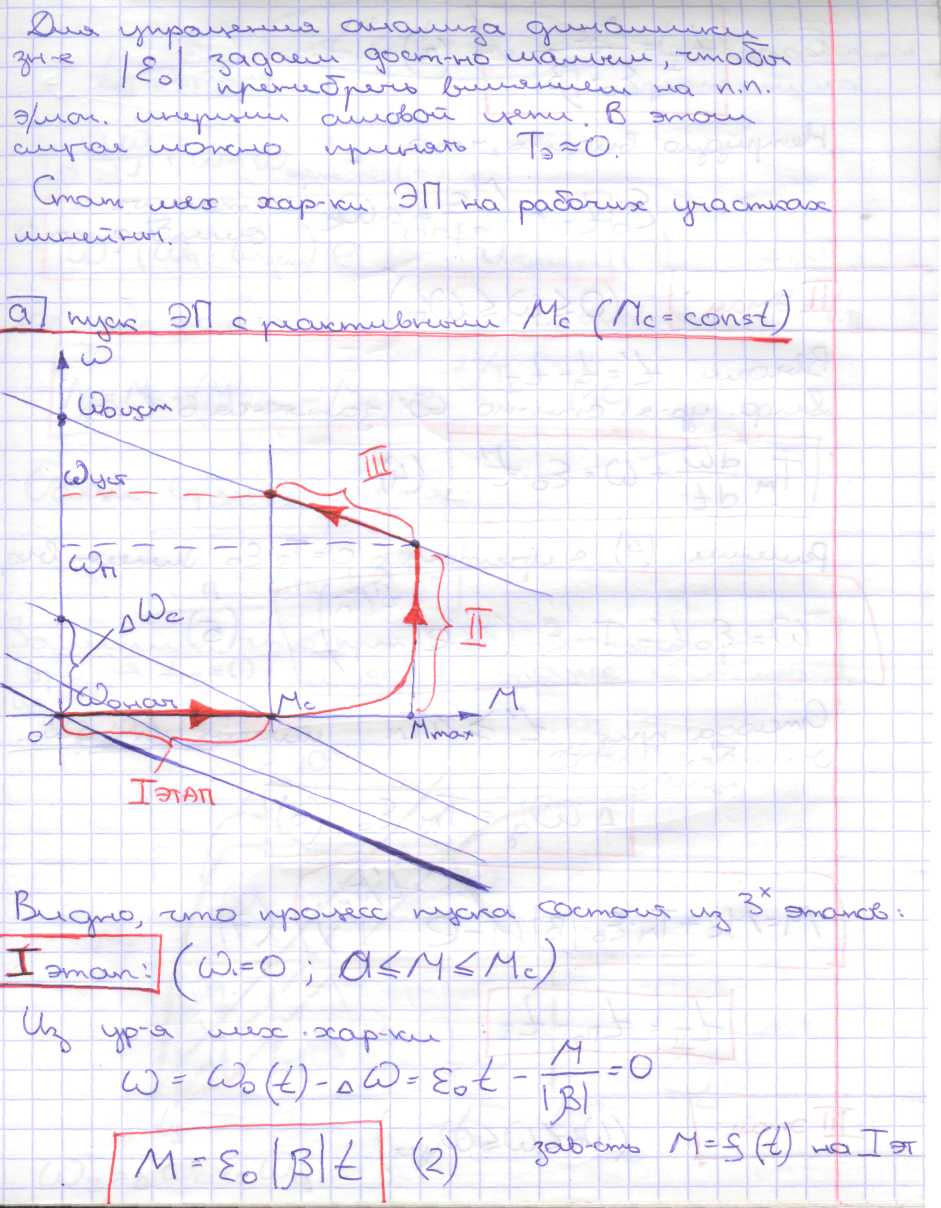 Для упрощения анализа динамики
зн-е |ε₀| задаем дост-но малым, чтобы
пренебречь влиянием на п.п.
э/маг. инерции силовой цепи. В этом
случае можно принять Tэ≈0.
Стат мех хар-ки ЭП на рабочих участках
линейны.
а) пуск ЭП с реактивным Mс (Mс = const)
ω
ω₀уст
ωуст
III
ωп
Δωс
II
ω₀нач
Mс
M
0
Mmax
I ЭТАП
Видно, что процесс пуска состоит из 3ˣ этапов:
I этап: (ω=0 ; 0≤M≤Mс)
Из ур-я мех. хар-ки
ω = ω₀(t) - Δω = ε₀t - M/|β| = 0
M = ε₀|β|t (2) зав-сть M=f(t) на I эт